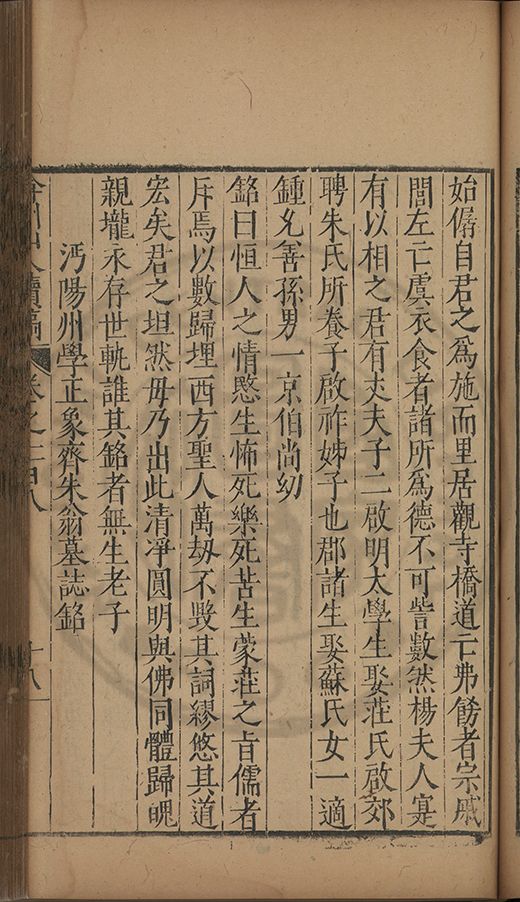 始僝自君之爲施而里居觀寺橋道亡弗餝者宗戚
閭左亡虞衣食者諸所爲德不可訾數然楊夫人寔
有以相之君有丈夫子二啟明太學生娶莊氏啟郊
聘朱氏所養子啟祚姊子也郡諸生娶蘇氏女一適
鍾允善孫男一京伯尚幼
銘曰恒人之情愍生怖死樂死苦生蒙莊之旨儒者
斥焉以數歸埋西方聖人萬劫不毀其詞繆悠其道
宏矣君之坦然毋乃出此清凈圓明與佛同體歸魄
親壠永存世軌誰其銘者無生老子
沔陽州學正象齊朱翁墓誌銘
弇州山人續稿 卷之一百八 十八